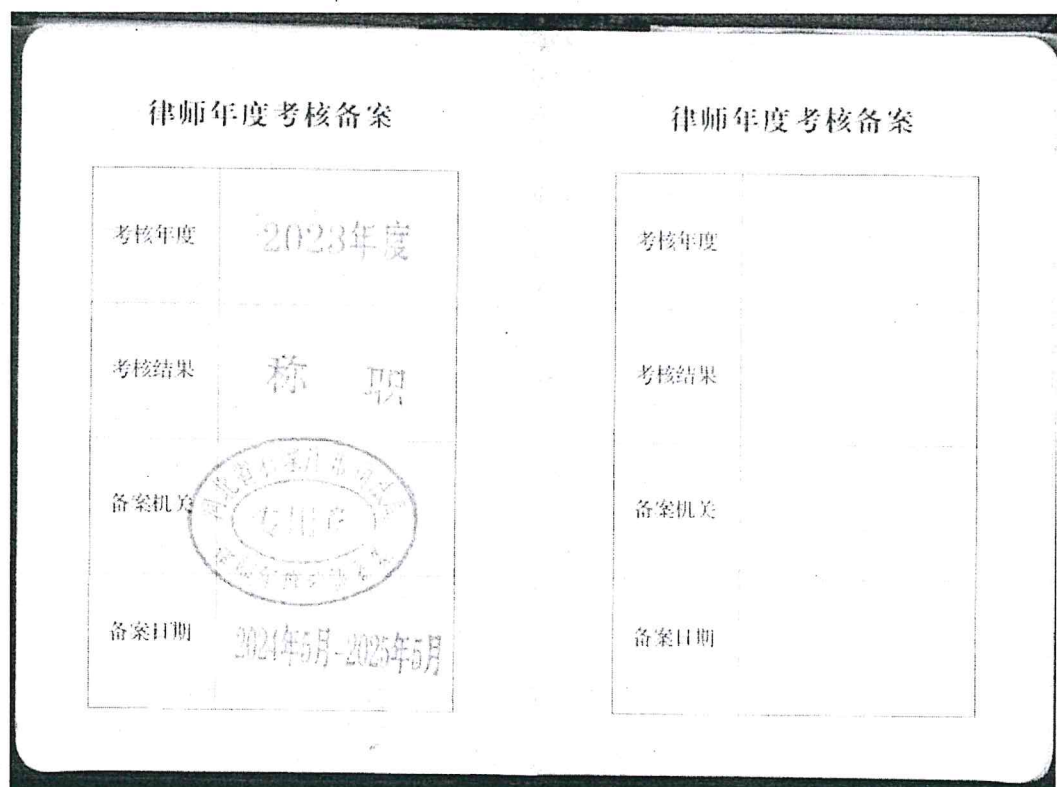 律师年度考核备案
考核年度 2023年度
考核结果 称 职
备案机关
专用章
备案日期 2024年5月-2025年5月
律师年度考核备案
考核年度
考核结果
备案机关
备案日期